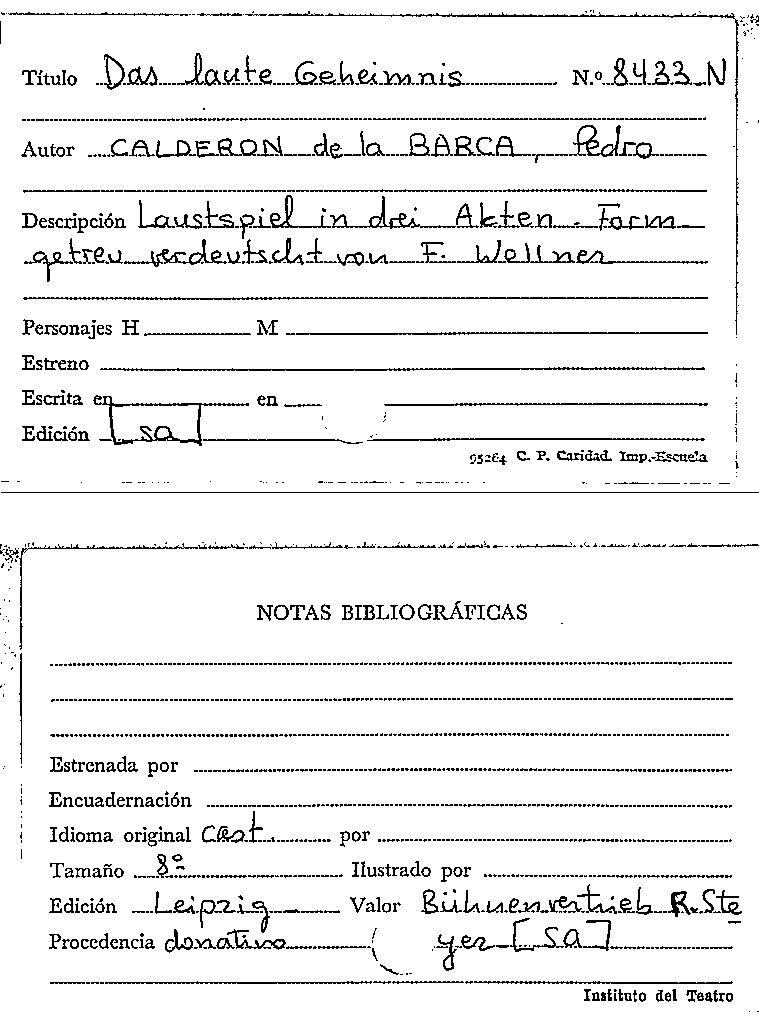 Título Das laute Geheimnis N.º 8433-N
Autor CALDERON de la BARCA, Pedro
Descripción Laustspiel in drei Akten. Form-
getreu verdeutscht von F. Wellner
Personajes H M
Estreno
Escrita en en
Edición [sa]
95264 C. P. Caridad. Imp.-Escuela
NOTAS BIBLIOGRÁFICAS
Estrenada por
Encuadernación
Idioma original Cast. por
Tamaño 8º Ilustrado por
Edición Leipzig Valor Bühnenvertrieb R. Ste
Procedencia donativo yer [sa]
Instituto del Teatro